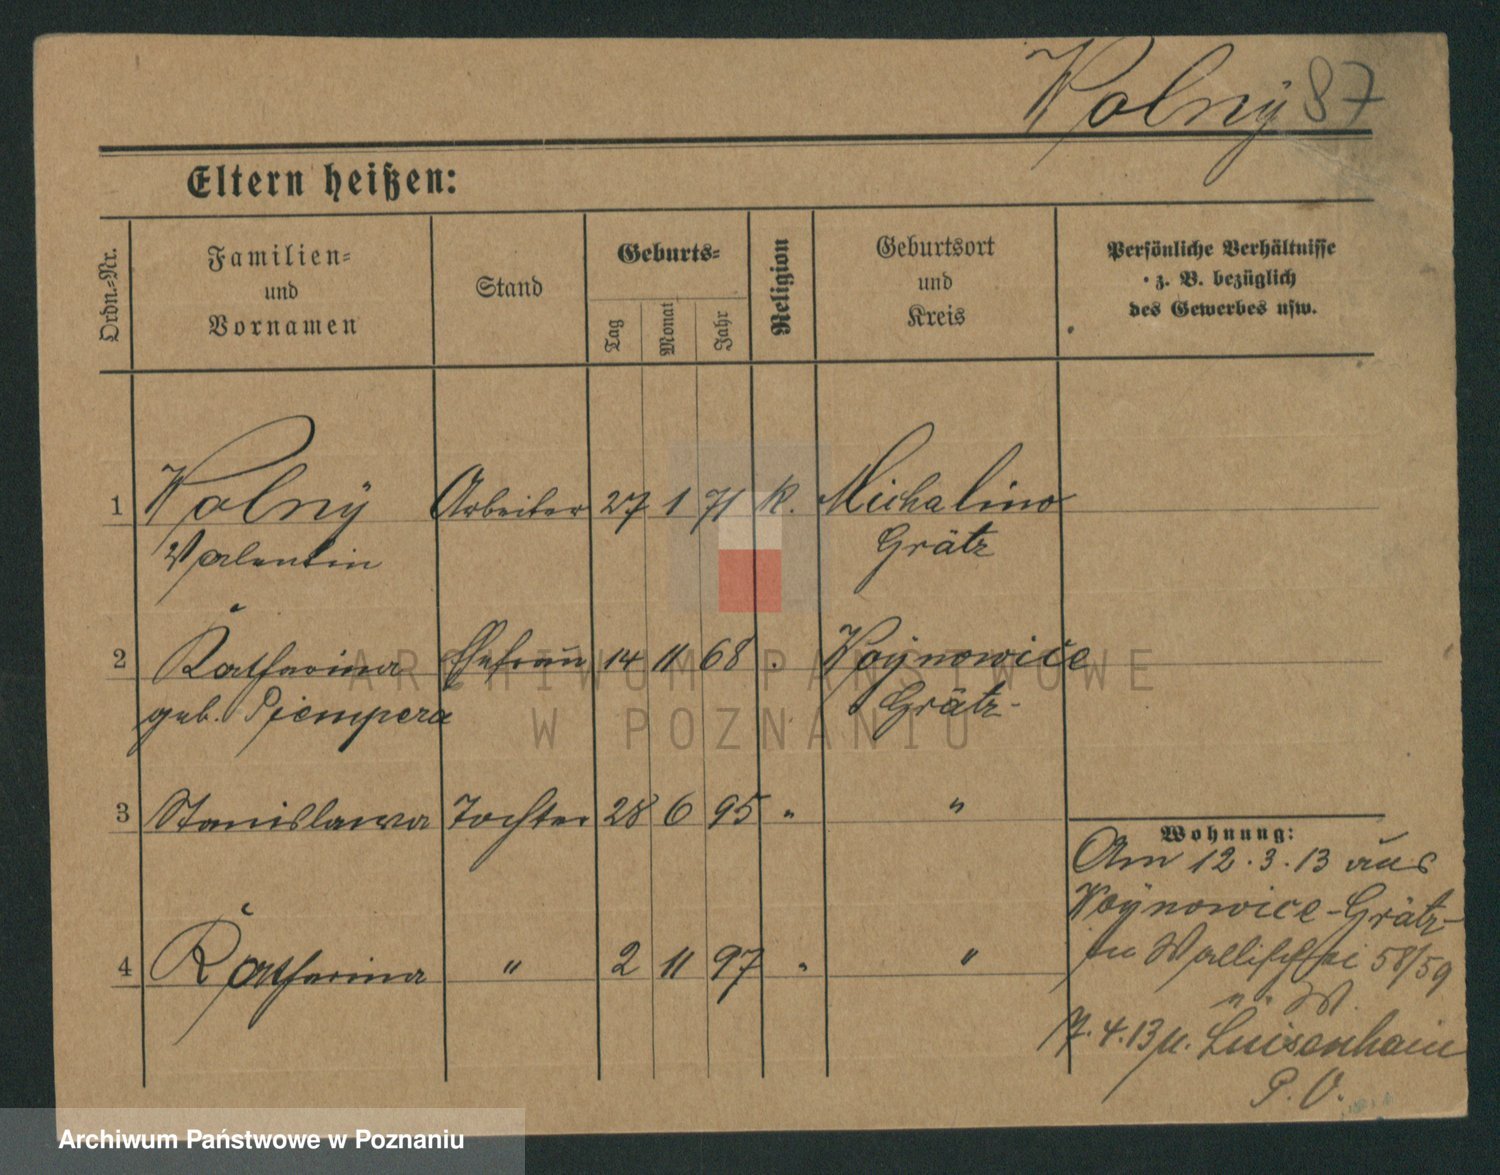 Wolnÿ 87
Eltern heißen:
Ordn.=Nr.
Familien=
und
Vornamen
Stand
Geburts=
Tag
Monat
Jahr
Religion
Geburtsort
und
Kreis
Persönliche Verhältnisse
z. B. bezüglich
des Gewerbes usw.
1 Wolnÿ Arbeiter 27 1 71 K. Michalino
Valentin Grätz
2 Katharina Ehefrau 14 11 68 Woÿnowice
geb. Piempera Grätz
3 Stanislawa Tochter 28 6 95 " "
4 Katharina " 2 11 97 " "
Wohnung:
Am 12.3.13 aus
Woÿnowice-Grätz
in Wallischei 58/59
7.4.13 n. Luisenhain
P. O.
ARCHIWUM PAŃSTWOWE
W POZNANIU
Archiwum Państwowe w Poznaniu